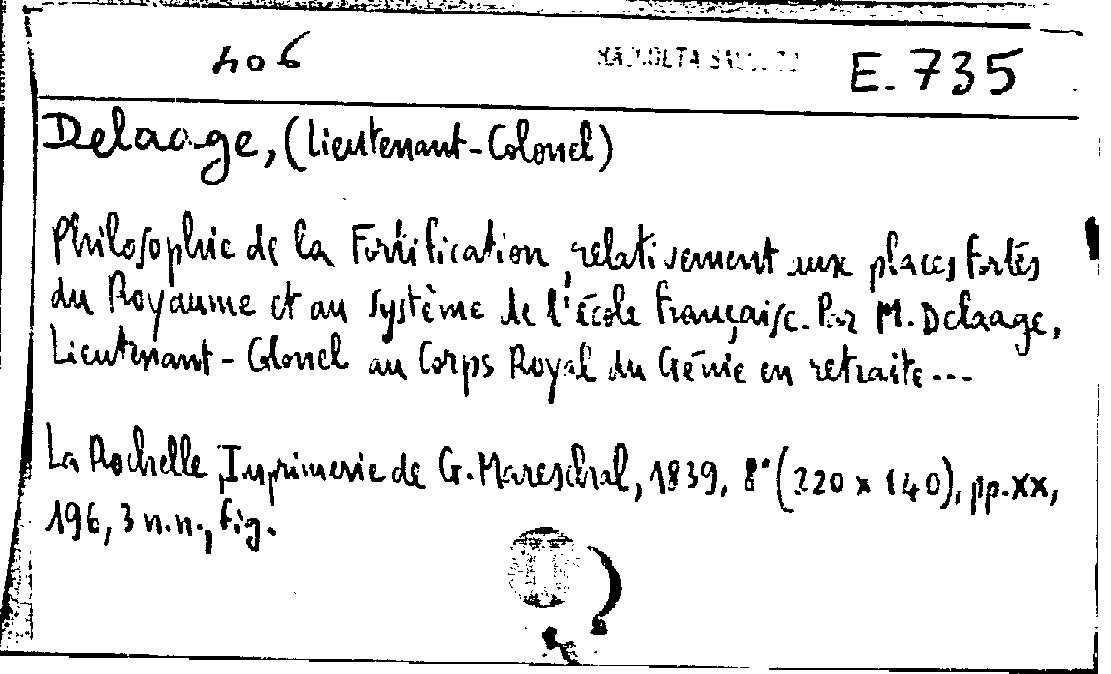 406
RACCOLTA
E. 735
Delaage, (Lieutenant-Colonel)
Philosophie de la Fortification, relativement aux places fortes
du Royaume et au système de l'école Française. Par M. Delaage,
Lieutenant-Colonel au Corps Royal du Génie en retraite...
La Rochelle, Imprimerie de G. Mareschal, 1839, 8° (220 x 140), pp. XX,
196, 3 n.n., fig.